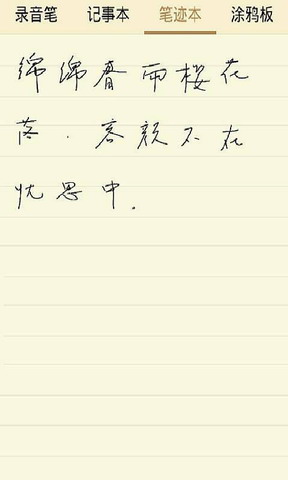 录音笔 记事本 笔迹本 涂鸦板
绵绵春雨樱花
落．容颜不在
忧思中．